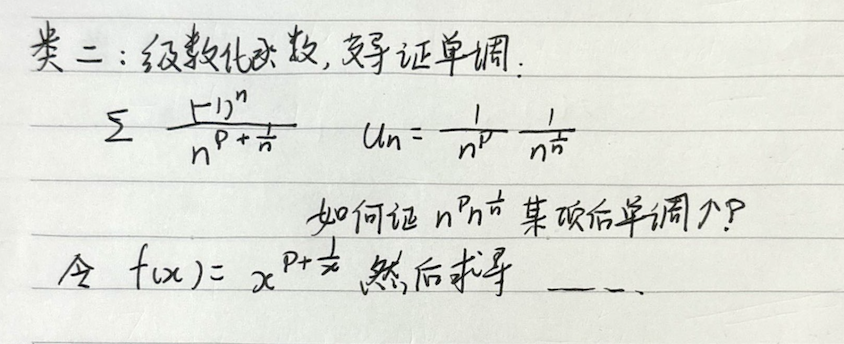 类二：级数化函数，求导证单调.
∑ (-1)ⁿ / n^(p+1/n)  Un = 1/n^p 1/n^(1/n)
如何证 n^p n^(1/n) 某项后单调↑?
令 f(x) = x^(p+1/x) 然后求导 ——...